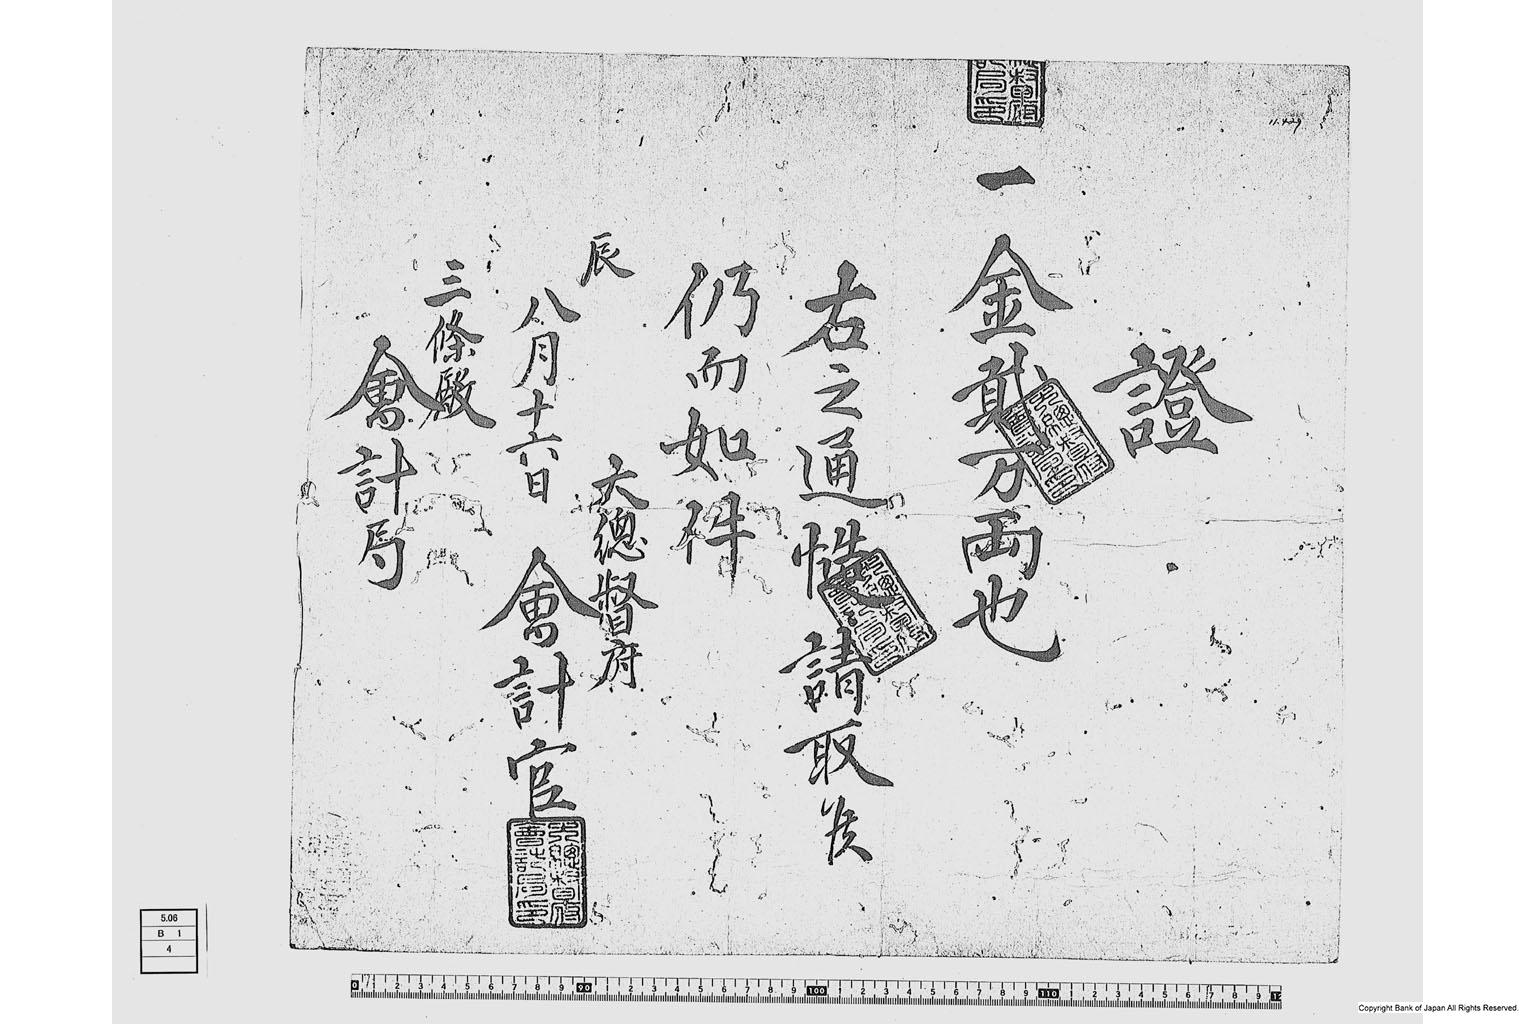 證
一金貳万両也
右之通慥請取候
仍而如件
辰 大總督府
八月十六日 會計官
大總督府會計局印
三條殿
會計局
5.06
B 1
4
Copyright Bank of Japan All Rights Reserved.